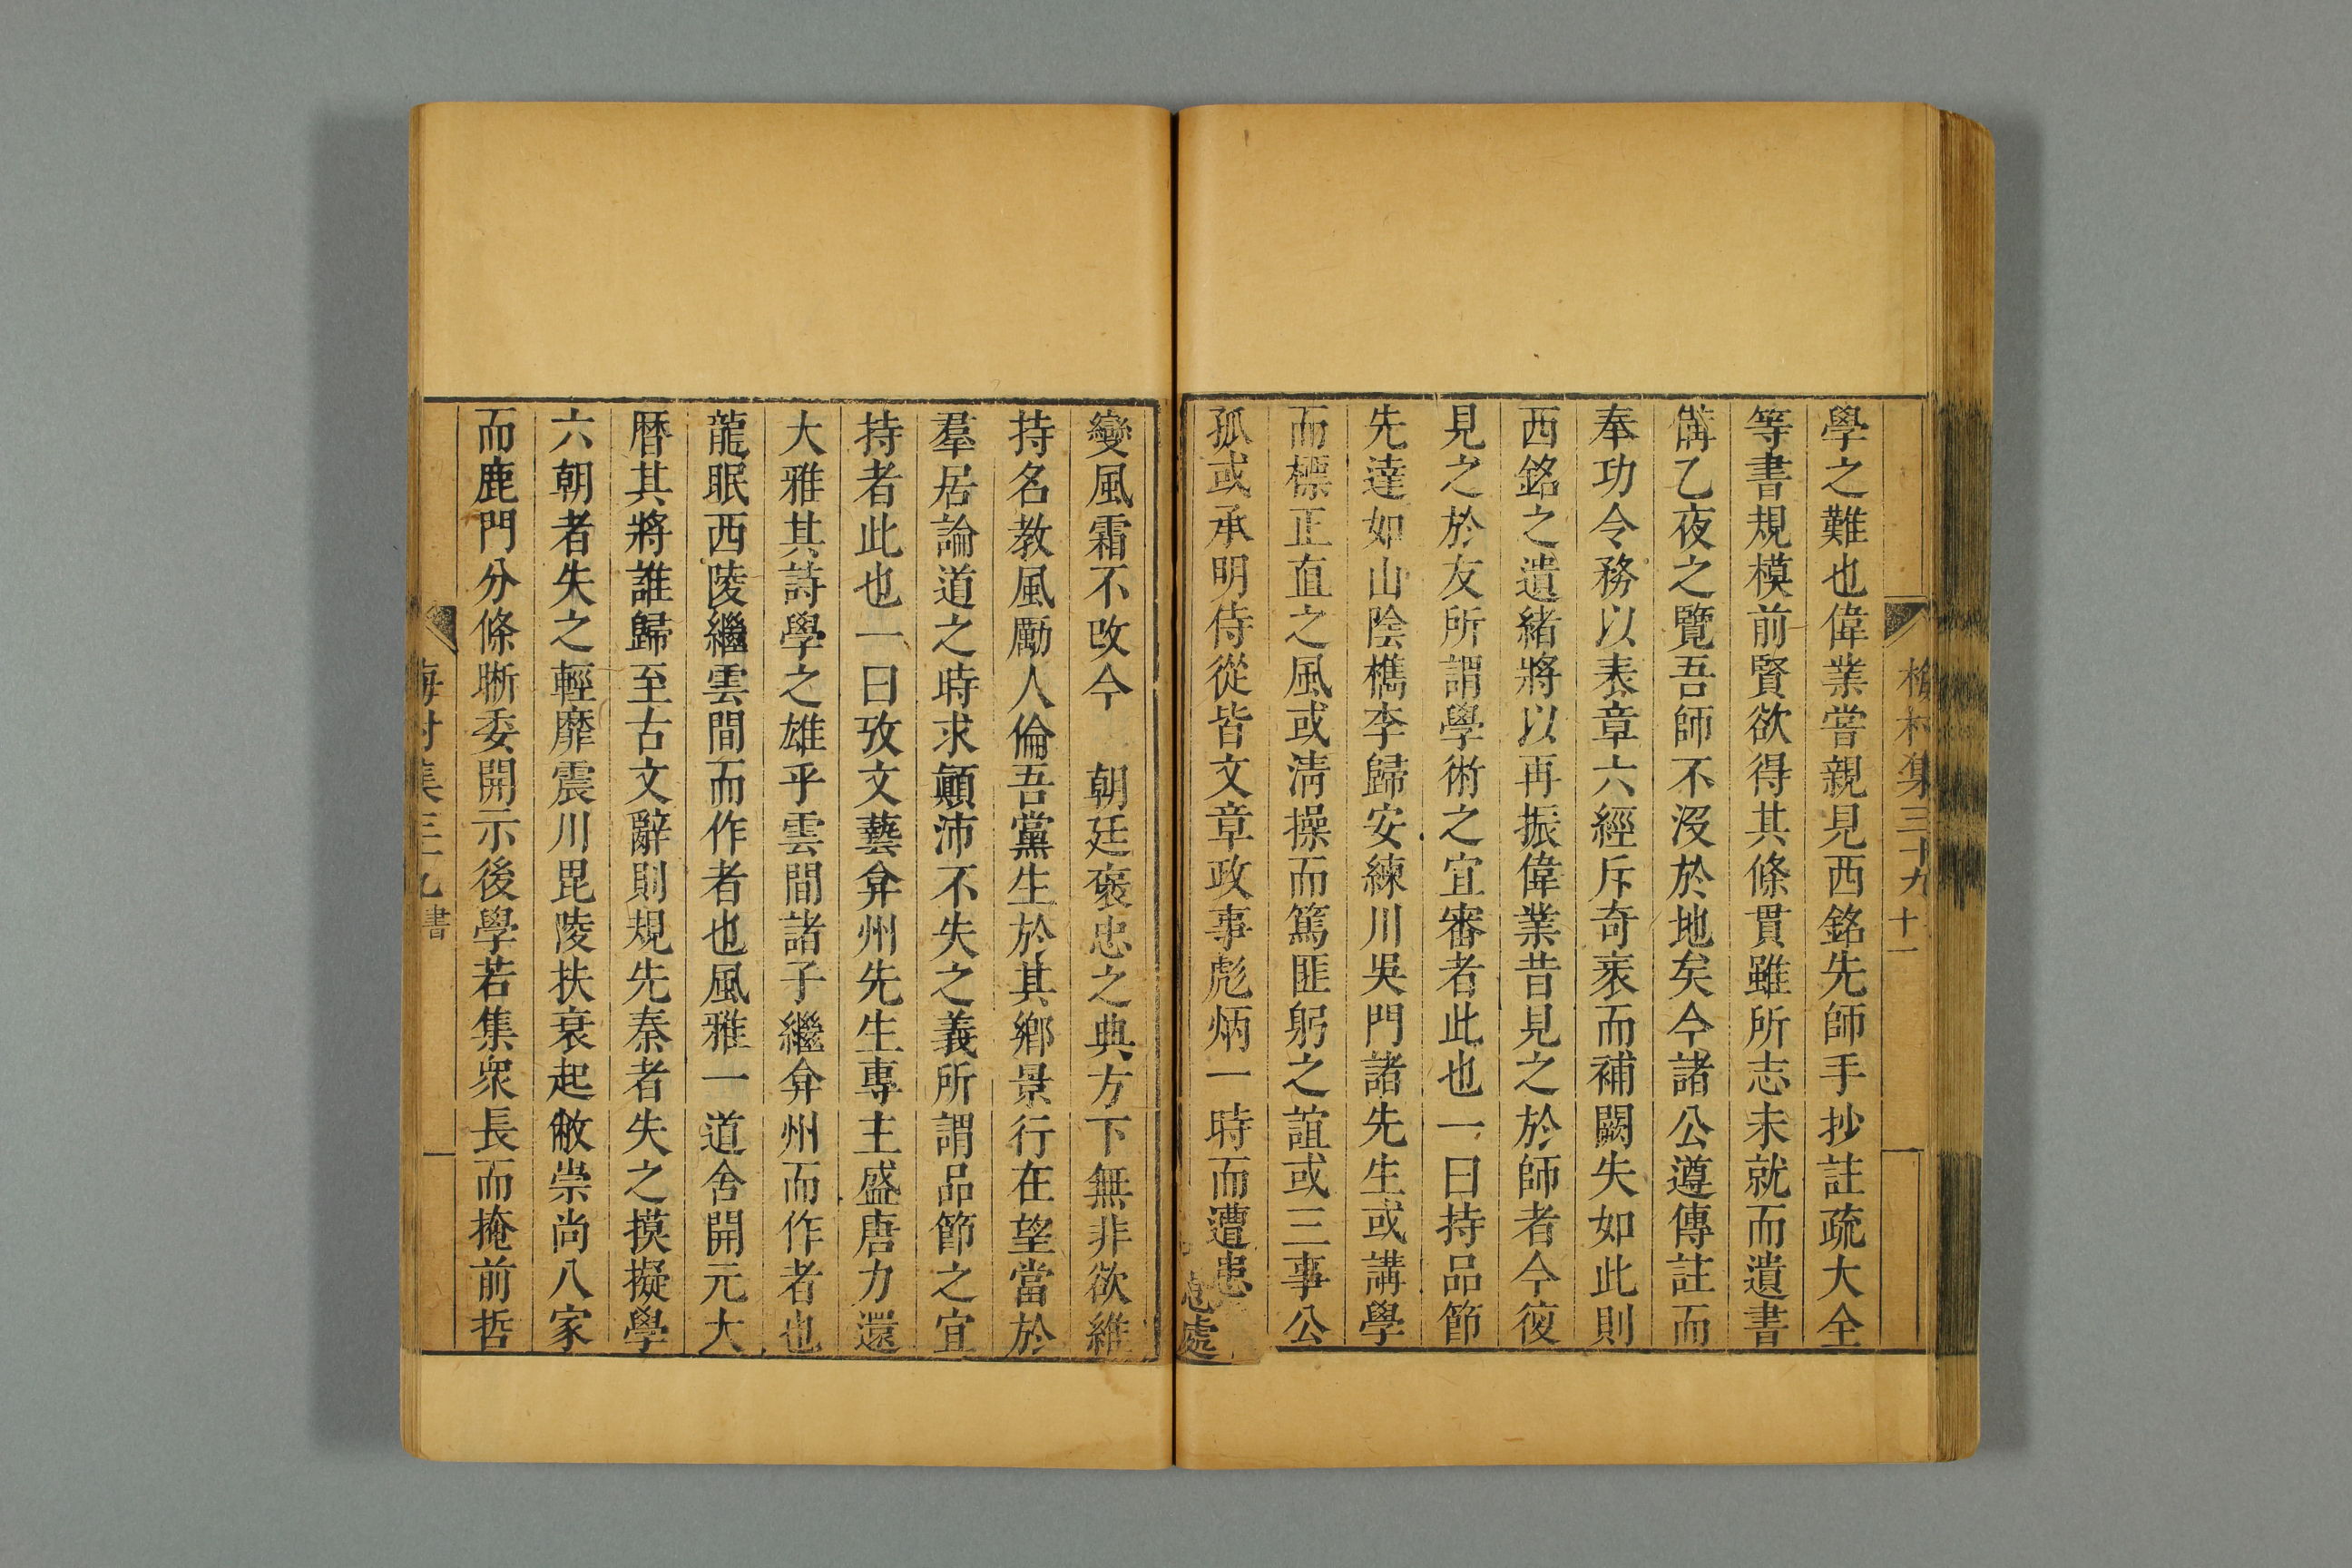 梅村集三十九 十一
學之難也偉業嘗親見西銘先師手抄註疏大全
等書規模前賢欲得其條貫雖所志未就而遺書
備乙夜之覽吾師不沒於地矣今諸公遵傳註而
奉功令務以表章六經斥奇衺而補闕失如此則
西銘之遺緒將以再振偉業昔見之於師者今復
見之於友所謂學術之宜審者此也一曰持品節
先達如山陰檇李歸安練川吳門諸先生或講學
而標正直之風或清操而篤匪躬之誼或三事公
孤或承明侍從皆文章政事彪炳一時而遭患
處
變風霜不改今 朝廷褒忠之典方下無非欲維
持名教風勵人倫吾黨生於其鄉景行在望當於
羣居論道之時求顚沛不失之義所謂品節之宜
持者此也一曰攷文藝弇州先生專主盛唐力還
大雅其詩學之雄乎雲間諸子繼弇州而作者也
龍眠西陵繼雲間而作者也風雅一道舍開元大
曆其將誰歸至古文辭則規先秦者失之摸擬學
六朝者失之輕靡震川毘陵扶衰起敝崇尚八家
而鹿門分條晰委開示後學若集衆長而掩前哲
梅村集三十九 書